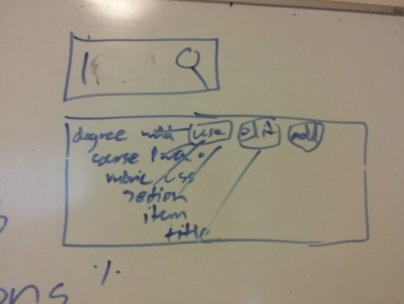 degree use edit add
course
rubric css
section
item
title
ons %